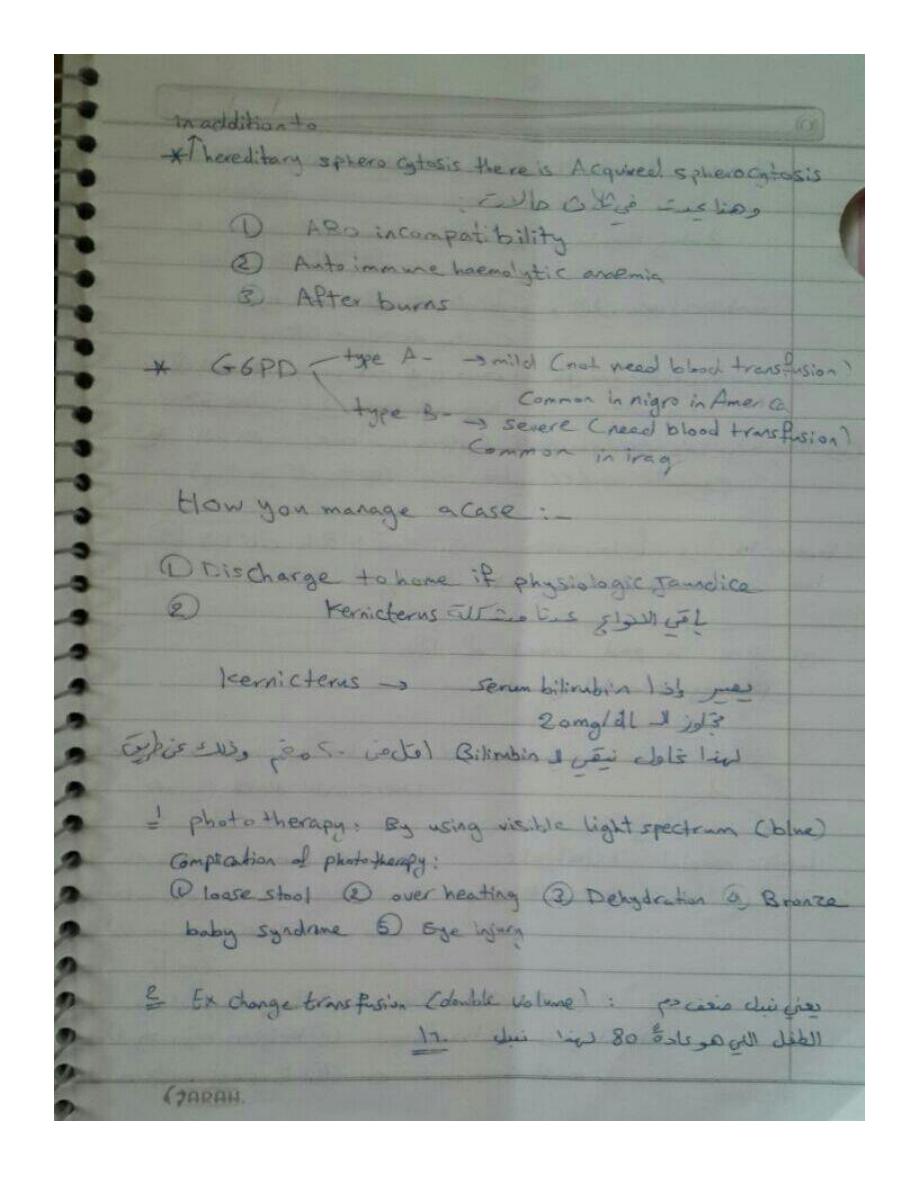 in addition to
* ↑ hereditary sphero cytosis there is Acquired spherocytosis
وهنا يحدث في ثلاث حالات :
① ABO incompatibility
② Autoimmune haemolytic anaemia
③ After burns
* G6PD type A- → mild (not need blood transfusion)
Common in nigro in America
type B- → severe (need blood transfusion)
Common in iraq
How you manage a case :-
① Discharge to home if physiologic Jaundice
② باقي الانواع عدنا مشكلة Kernicterus
Kernicterus → يصير إذا serum bilirubin
تجاوز الـ 20mg/dL
لهذا نحاول نبقي الـ Bilirubin اقل من ٢٠ ملغم وذلك عن طريق
١ phototherapy: By using visible light spectrum (blue)
Complication of phototherapy:
① loose stool ② over heating ③ Dehydration ④ Bronze
baby syndrome ⑤ Eye injury
٢ Ex change transfusion (double volume) : يعني نبدل ضعف دم
الطفل اللي هو عادة 80 لهذا نبدل ١٦٠
SARAH.